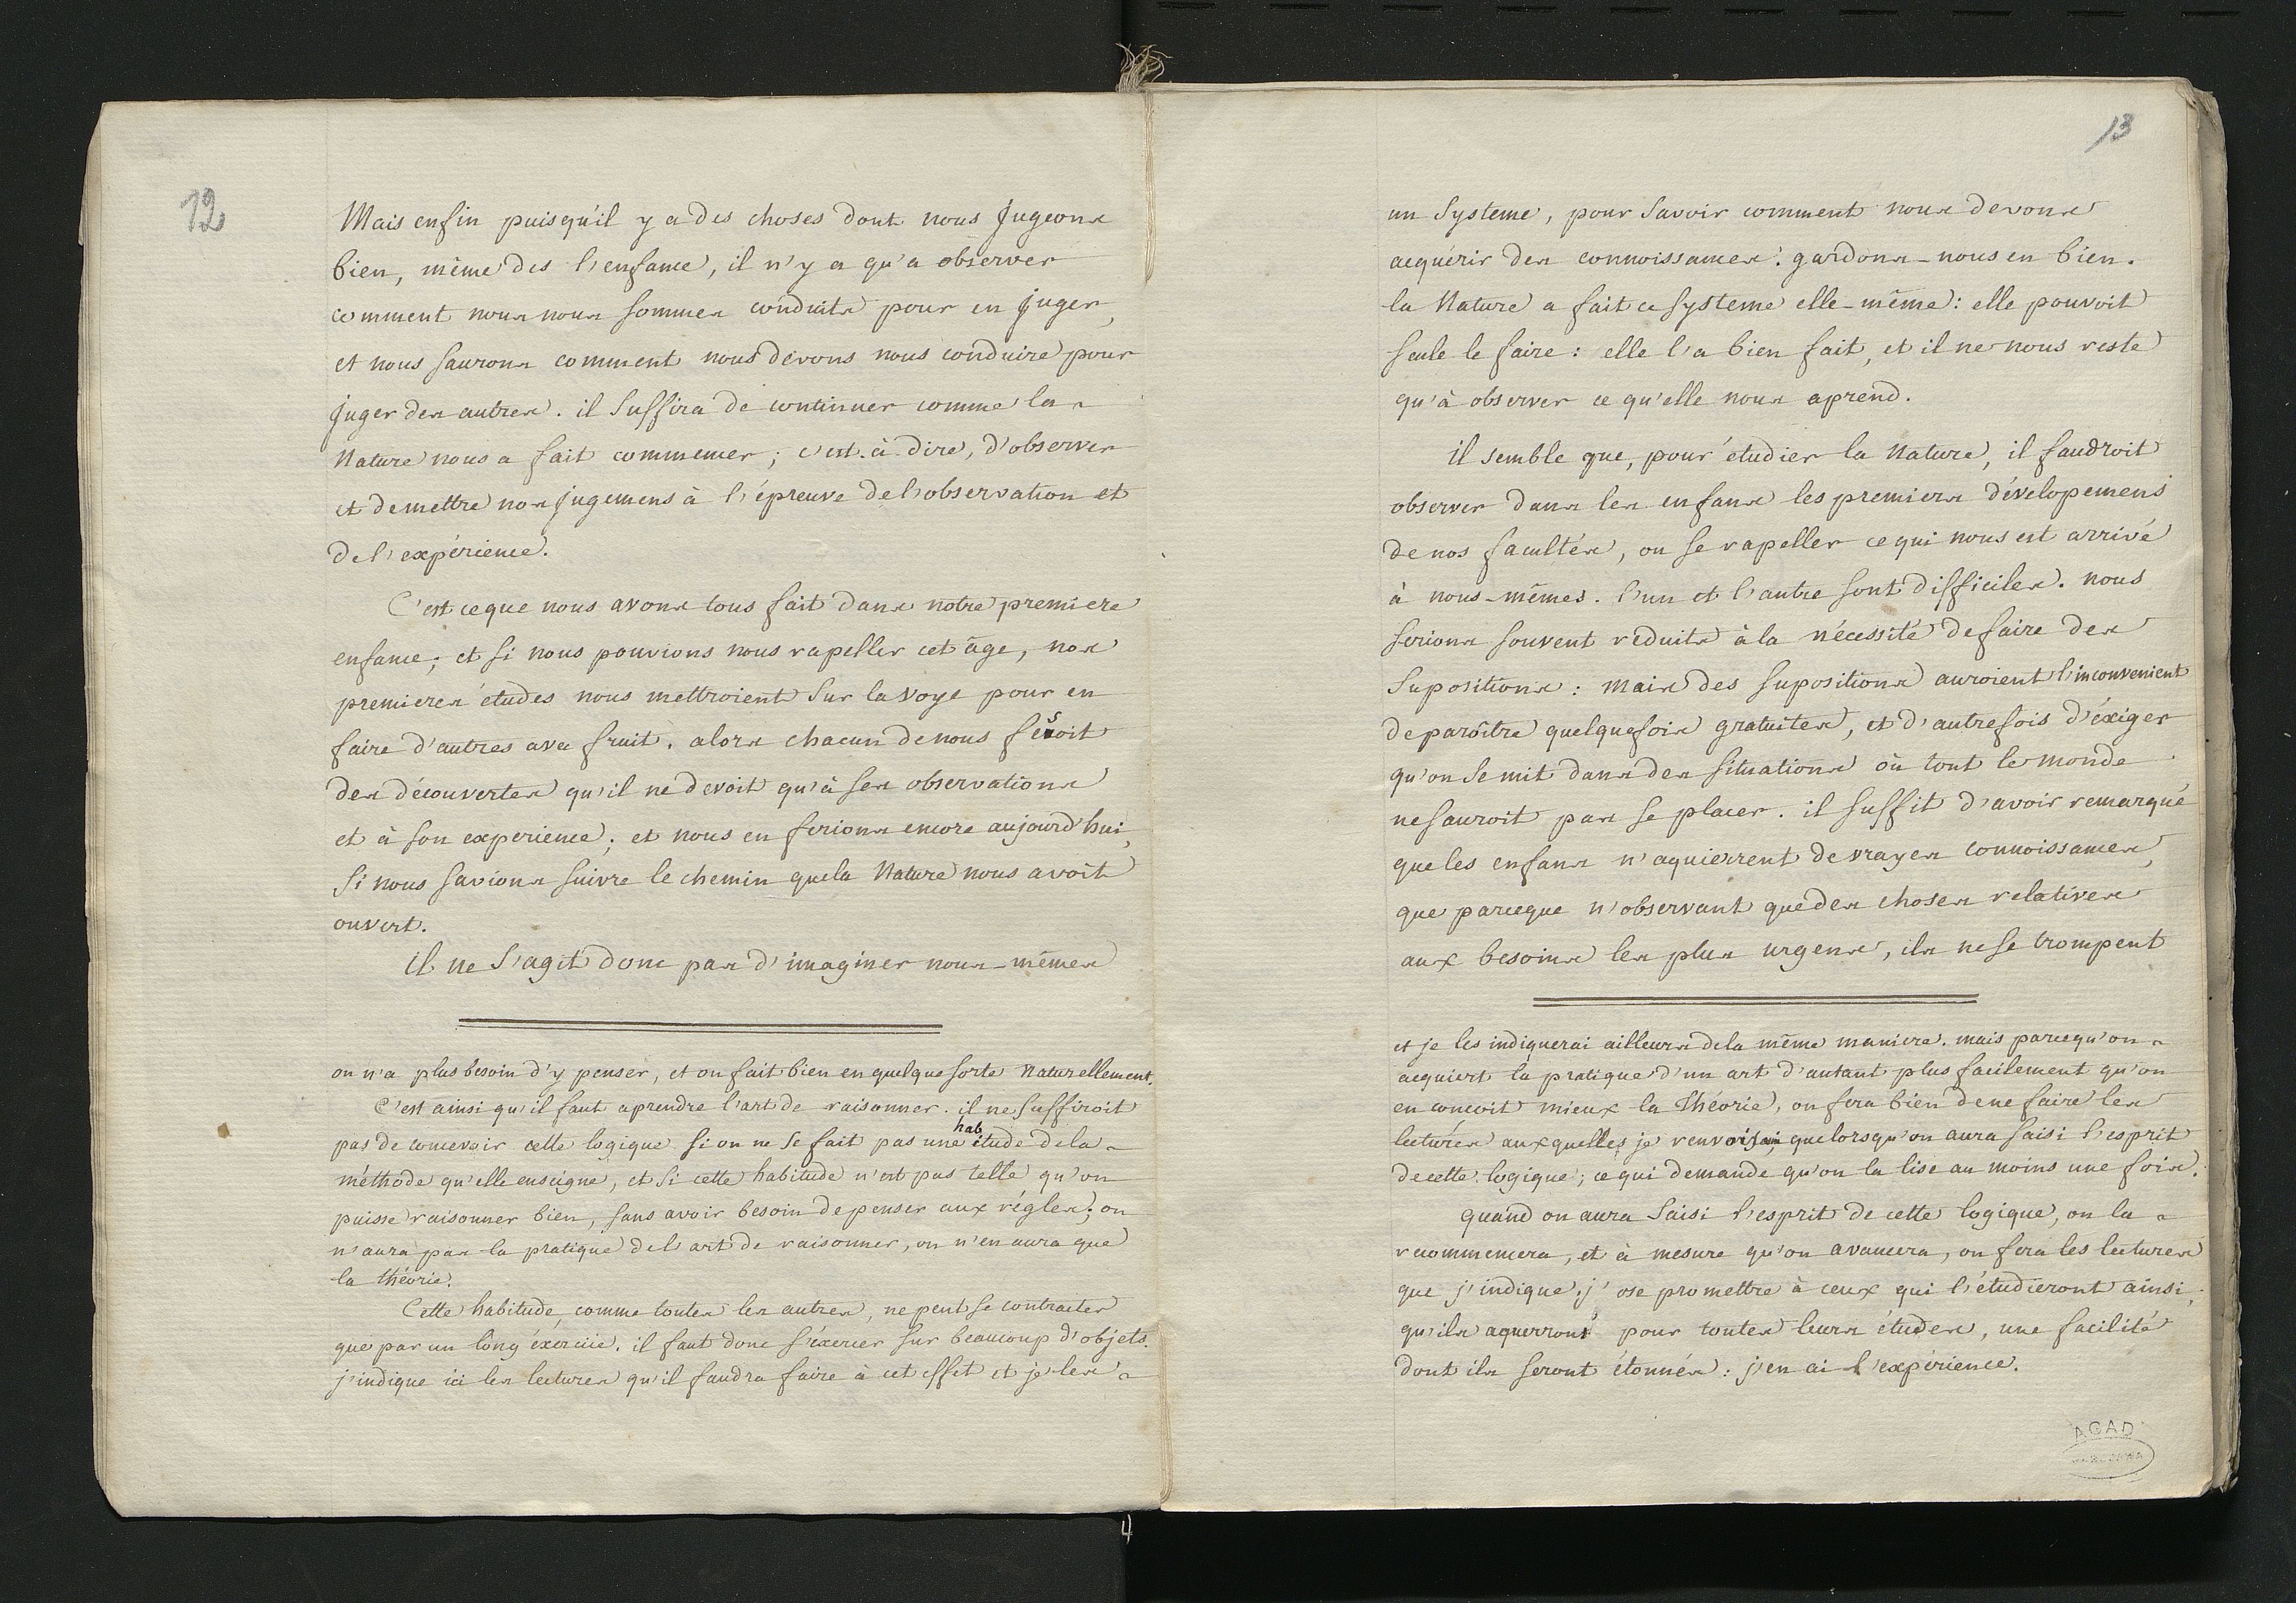 12
Mais enfin puisqu'il y a des choses dont nous jugeons
bien, même des l'enfance, il n'y a qu'a observer
comment nous nous sommes conduits pour en juger,
et nous saurons comment nous devons nous conduire pour
juger des autres. il suffira de continuer comme la
Nature nous a fait commencer; c'est-à-dire, d'observer
et de mettre nos jugemens à l'épreuve de l'observation et
de l'expérience.
C'est ce que nous avons tous fait dans notre premiere
enfance; et si nous pouvions nous rapeller cet âge, nos
premieres études nous mettroient sur la voye pour en
faire d'autres avec fruit. alors chacun de nous fesoit
des découvertes qu'il ne devoit qu'à ses observations
et à son experience; et nous en ferions encore aujourd'hui,
si nous savions suivre le chemin que la Nature nous avoit
ouvert.
Il ne s'agit donc pas d'imaginer nous-mêmes
on n'a plus besoin d'y penser, et on fait bien en quelque sorte naturellement.
C'est ainsi qu'il faut aprendre l'art de raisonner. il ne suffiroit
pas de concevoir cette logique si on ne se fait pas une habitude de la
méthode qu'elle enseigne, et si cette habitude n'est pas telle qu'on
puisse raisonner bien, sans avoir besoin de penser aux régles; on
n'aura pas la pratique de l'art de raisonner, on n'en aura que
la théorie.
Cette habitude, comme toutes les autres, ne peut se contracter
que par un long éxercice. il faut donc s'éxercer sur beaucoup d'objets.
j'indique ici les lectures qu'il faudra faire à cet effet et je les
13
un systeme, pour savoir comment nous devons
acquérir des connoissances: gardons-nous en bien.
la Nature a fait ce systeme elle-même: elle pouvoit
seule le faire: elle l'a bien fait, et il ne nous reste
qu'à observer ce qu'elle nous aprend.
il semble que, pour étudier la Nature, il faudroit
observer dans les enfans les premiers dévelopemens
de nos facultés, ou se rapeller ce qui nous est arrivé
à nous-mêmes. l'un et l'autre sont difficiles. nous
serions souvent réduits à la nécessité de faire des
supositions: mais des supositions auroient l'inconvenient
de paroître quelquefois gratuites, et d'autrefois d'éxiger
qu'on se mit dans des situations où tout le monde
ne sauroit pas se placer. il suffit d'avoir remarqué
que les enfans n'aquierrent de vrayes connoissances,
que parceque n'observant que des choses relatives
aux besoins les plus urgens, ils ne se trompent
et je les indiquerai ailleurs de la même maniere. mais parcequ'on
acquiert la pratique d'un art d'autant plus facilement qu'on
en conçoit mieux la théorie, on fera bien de ne faire les
lectures auxquelles je renvois, que lorsqu'on aura saisi l'esprit
de cette logique; ce qui demande qu'on la lise au moins une fois.
quand on aura saisi l'esprit de cette logique, on la
recommencera, et à mesure qu'on avancera, on fera les lectures
que j'indique. j'ose promettre à ceux qui l'étudieront ainsi,
qu'ils aquerront pour toutes leurs études, une facilité
dont ils seront étonnés: j'en ai l'expérience.
AGAD
4